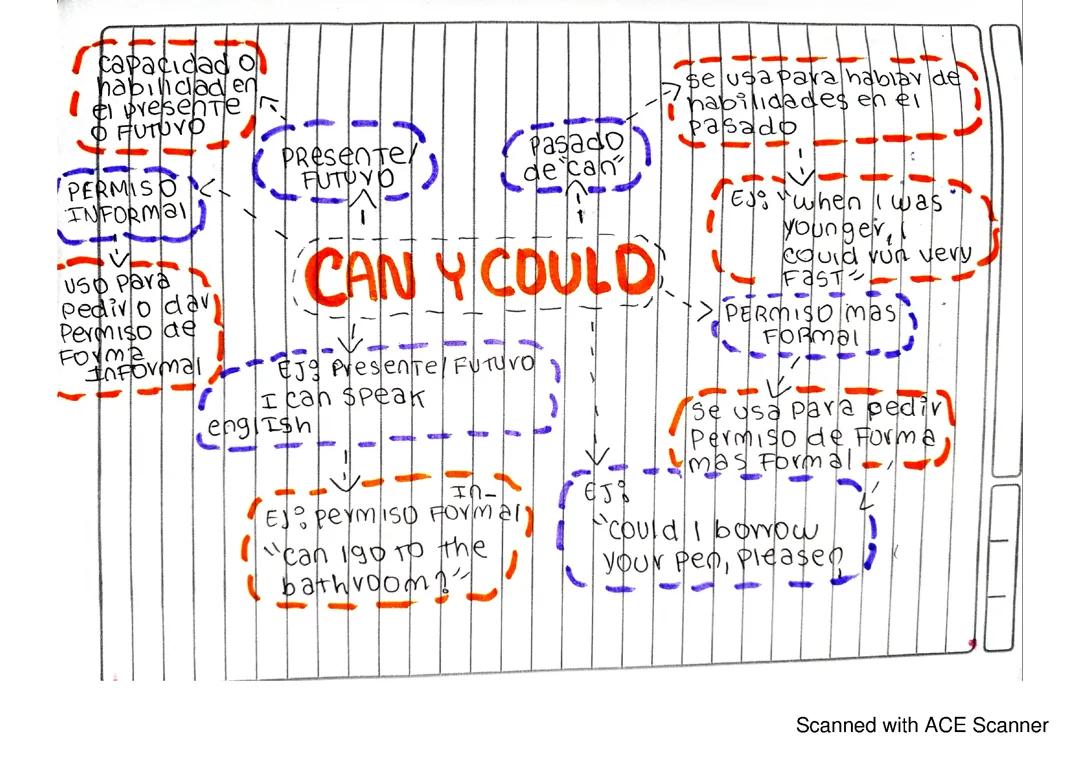 CAN Y COULD
PRESENTE/
FUTURO
capacidad o
habilidad en
el presente
o FUTURO
PERMISO
INFORMAL
uso para
pedir o dar
Permiso de
Forma
InFormal
EJ: Presente/FUTURO
I can speak
english
In-
EJ: permiso FORMAL
"can I go TO the
bathroom?"
PASADO
de "can"
se usa para hablar de
habilidades en el
pasado
EJ: "when I was
younger, I
could run very
FAST"
PERMISO MAS
FORMAL
se usa para pedir
Permiso de Forma
mas Formal
EJ:
"could I borrow
your pen, please?
Scanned with ACE Scanner